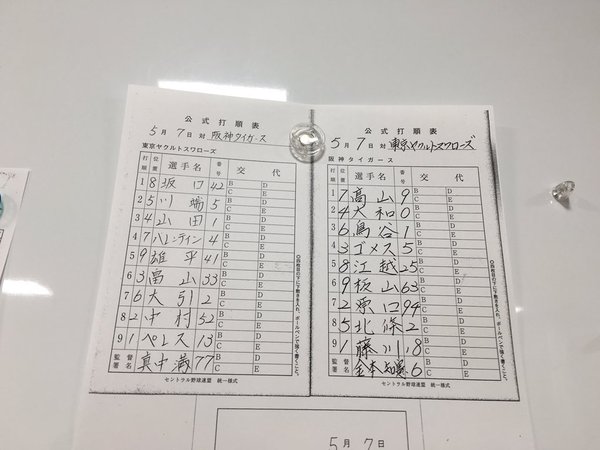 公式打順表
5月7日対 阪神タイガース
東京ヤクルトスワローズ
打順 選手名 番号 交代
1 8 坂口 42 B D C E
2 5 川端 5 B D C E
3 4 山田 1 B D C E
4 7 バレンティン 4 B D C E
5 9 雄平 41 B D C E
6 3 畠山 33 B D C E
7 6 大引 2 B D C E
8 2 中村 52 B D C E
9 1 ペレス 13 B D C E
監督署名 真中満 77 B D C E
セントラル野球連盟 統一様式
公式打順表
5月7日対 東京ヤクルトスワローズ
阪神タイガース
打順 選手名 番号 交代
1 7 高山 9 B D C E
2 4 大和 0 B D C E
3 6 鳥谷 1 B D C E
4 3 ゴメス 5 B D C E
5 8 江越 25 B D C E
6 9 板山 63 B D C E
7 2 原口 94 B D C E
8 5 北條 2 B D C E
9 1 藤川 18 B D C E
監督署名 金本知憲 6 B D C E
セントラル野球連盟 統一様式
5月7日